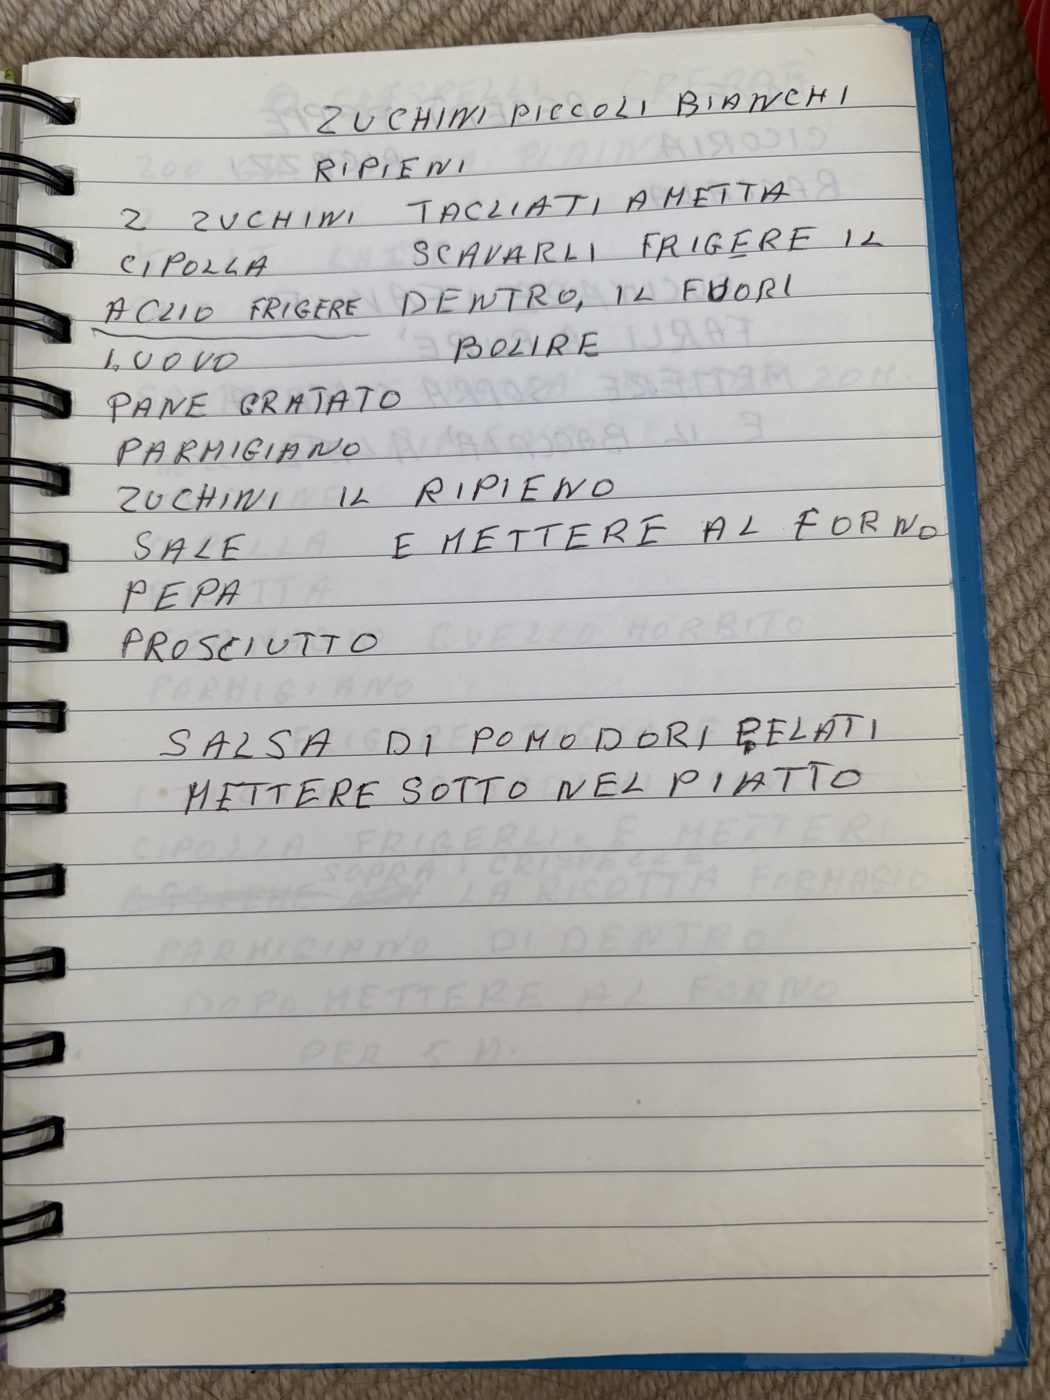 ZUCHINI PICCOLI BIANCHI
RIPIENI
2 ZUCHINI TAGLIATI A METTA
CIPOLLA SCAVARLI FRIGERE IL
AGLIO FRIGERE DENTRO, IL FUORI
1. UOVO BOLIRE
PANE GRATATO
PARMIGIANO
ZUCHINI IL RIPIENO
SALE E METTERE AL FORNO
PEPA
PROSCIUTTO
SALSA DI POMODORI PELATI
METTERE SOTTO NEL PIATTO